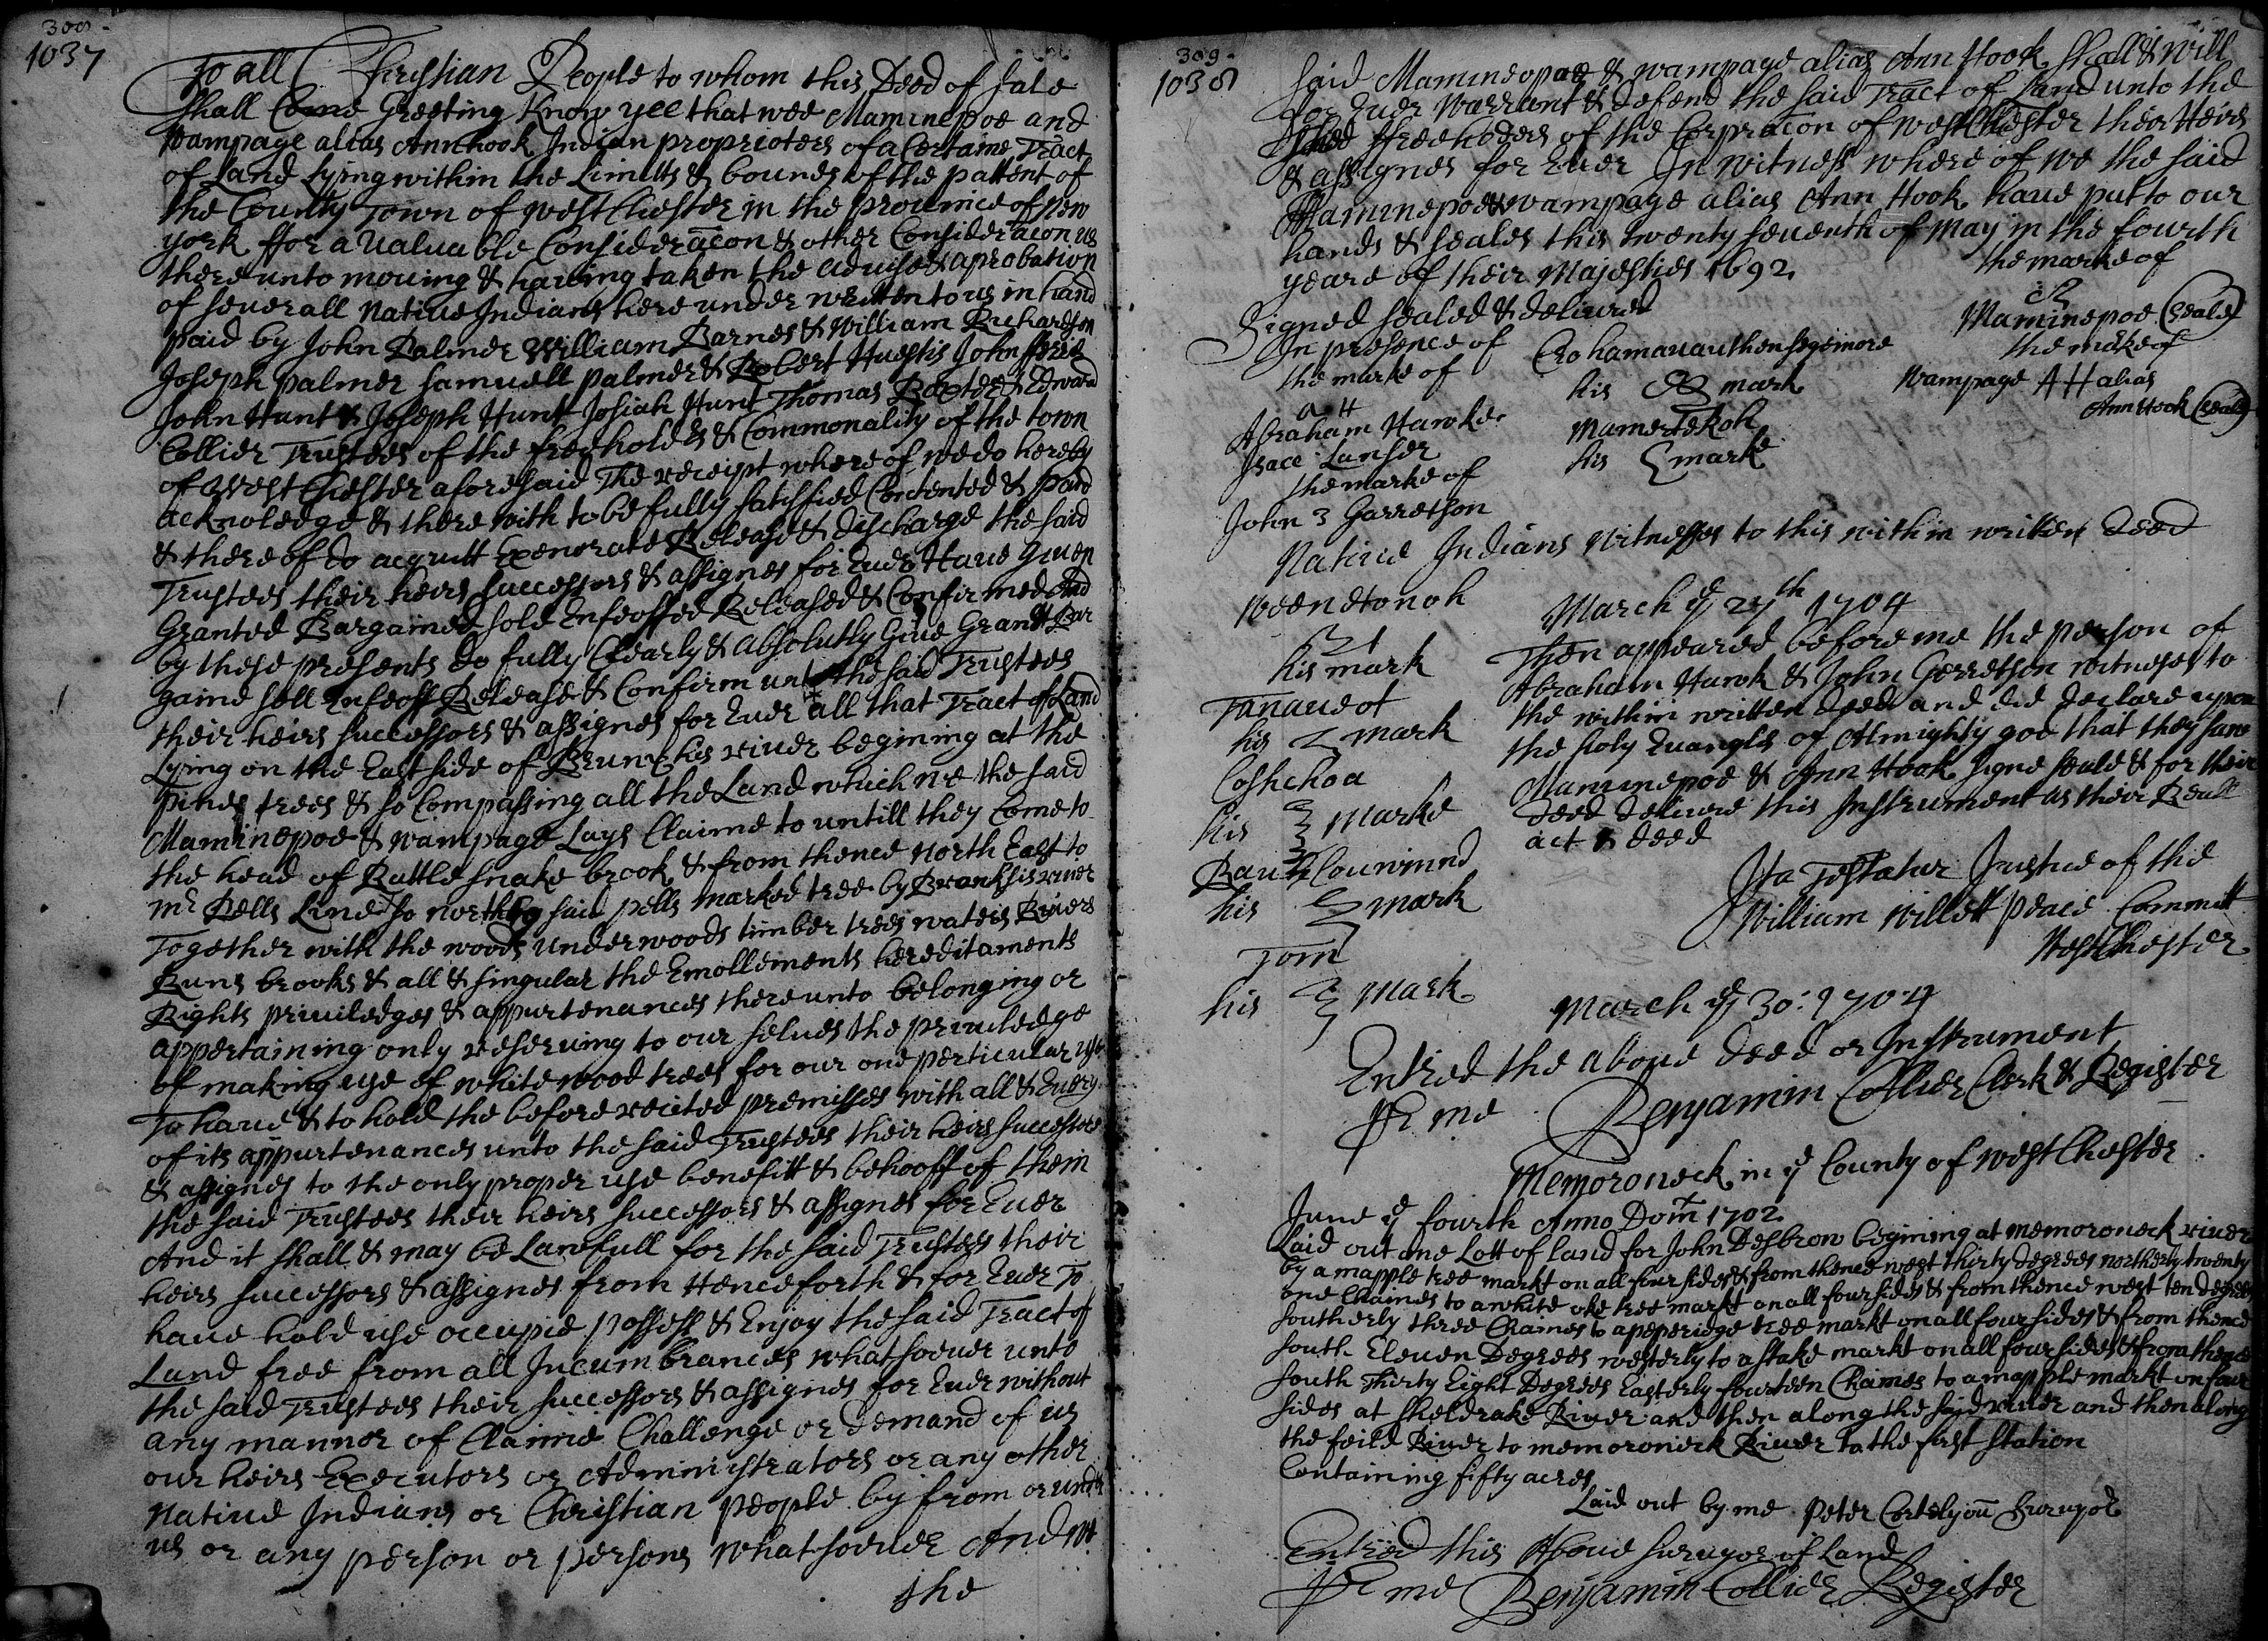 308
1037
To all Christian People to whom this Deed of Sale
shall Come Greeting Know yee that wee Maminepoe and
Wampage alias Annhook Indian proprietors of a Certaine Tract
of Land Lying within the Limitts & bounds of the pattent of
the County Town of westChester in the prouince of New
york ffor a Valuable Consideracon & other Consideracon us
there unto mouing & haueing taken the aduise & aprobation
of seuerall Natiue Indians here under written to us in hand
paid by John Palmer William Barnes & William Richardson
Joseph palmer Samuell palmer & Robert Huestis John fferis
John Hunt & Joseph Hunt Josiah Hunt Thomas Baxter & Edward
Collier Trustees of the freeholders & Commonality of the town
of West Chester aforesaid The receipt where of we do hereby
acknoledge & there with to be fully satisfied Contented & paid
& there of do acquitt Exenorate Release & discharge the said
Trustees their heirs successors & assignes for Euer Haue Giuen
Granted Bargained sold Enfeoffed Released & Confirmed And
by these presents do fully Clearly & absolutly Giue Grant Bar
gaine sell Enfeoff Release & Confirm unto the said Trustees
their heirs successors & assignes for Euer all that Tract of Land
Lying on the East side of Brunckes riuer begining at the
pines trees & so Compassing all the Land which we the said
Maminepoe & wampage Lays Claime to untill they Come to
the head of Rattlesnake brook & from thence North East to
mr Pells Line & so north by said pells marked tree by Bronksis riuer
Together with the woods underwoods timber trees waters Riuers
Runs brooks & all & singular the Emollements hereditaments
Rights priuiledges & appurtenances there unto belonging or
appertaining only reseruing to our selues the priuiledge
of making use of whitewood trees for our one perticular use
To haue & to hold the before recited premisses with all & Euery
of its appurtenances unto the said Trustees their heirs successors
& assignes to the only proper use benefitt & behooff of them
the said Trustees their heirs successors & assignes for Euer
And it shall & may be Lawfull for the said Trustees their
heirs successors & assignes from Henceforth & for Euer To
haue hold use occupie possess & Enjoy the said Tract of
Land free from all Incumbrances whatsoeuer unto
the said Trustees their successors & assignes for Euer without
any mannor of Claime Challenge or demand of us
our heirs Executors or Administrators or any other
Natiue Indians or Christian people by from or under
us or any person or persons whatsoeuer And we
the
309
1038
said Maminepoe & wampage alias Ann Hook shall & will
for Euer Warrant & defend the said Tract of Land unto the
said ffreeholders of the Corpracon of westChester their Heirs
& assignes for Euer In witness where of we the said
Maminepoe & wampage alias Ann Hook haue put to our
hands & seales this twenty seuenth of May in the fourth
yeare of their Majesties 1692
Signed sealed & deliuered
In presence of
the marke of
a H
Abraham Hawke
Isace Lanser
the marke of
John 3 Garretson
his mark
Mamertekoh
his marke
the marke of
Maminepoe (Seale)
the marke of
Wampage AH alias
Ann Hook (Seale)
Natiue Indians Witnesses to this within written deed
Weenetonoh
his mark
Tanaueot
his mark
Coshehoa
his marke
his mark
Tom
his mark
March ye 27th 1704
Then appeared before me the person of
Abraham Hawk & John Gerretson witneses to
the within written deed and did declare upon
the holy Euangles of Allmighty god that they saw
Maminepoe & Ann Hook signe seale & for their
deed deliuere this Instrument as their Reall
act & deed
Ita Testatur Justice of the
William Willett peace Committ
WestChester
March ye 30: 1704
Entred the aboue deed or Instrument
Pr me Benjamin Collier Clerk & Register
Memoroneck in ye County of westChester
June ye fourth Anno Dom 1702
Laid out one Lott of land for John Desbrow begining at memoroneck riuer
by a mapple tree markt on all four sides & from thence west thirty degrees northerly twenty
one Chaines to a white oke tree markt on all four sides & from thence west ten degrees
southerly three Chaines to a peperidge tree markt on all four sides & from thence
south Eleuen Degrees westerly to a stake markt on all four sides & from thence
south Thirty Eight Degrees Easterly fourteen Chaines to a mapple markt on four
sides at Sheldrake Riuer and then along the said riuer and then along
the feild Riuer to memoronieck Riuer to the first station
Containing fifty acres
Laid out by me Peter Cortelyou Surueyor
Entred this Aboue Surueyor of Land
Pr me Benjamin Collier Register